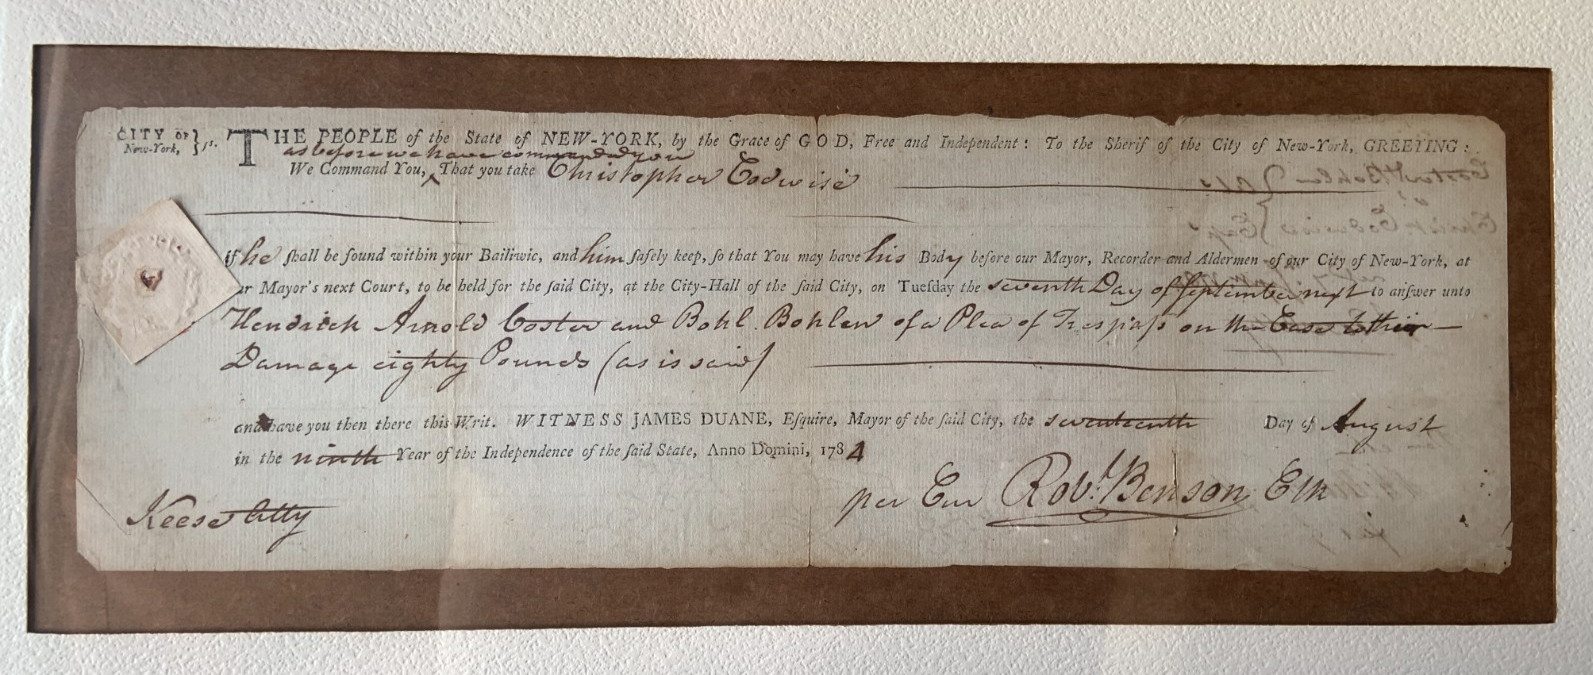 CITY OF New-York, } ss. THE PEOPLE of the State of NEW-YORK, by the Grace of GOD, Free and Independent: To the Sherif of the City of New-York, GREETING:
as before we have commanded you
We Command You, ^ That you take Christopher Codwise
if he shall be found within your Bailiwic, and him safely keep, so that You may have his Body before our Mayor, Recorder and Aldermen of our City of New-York, at
our Mayor's next Court, to be held for the said City, at the City-Hall of the said City, on Tuesday the seventh Day of September next to answer unto
Hendrick Arnold Coster and Bohl Bohlen of a Plea of Trespass on the Case to their
Damage eighty Pounds (as is said)
and have you then there this Writ. WITNESS JAMES DUANE, Esquire, Mayor of the said City, the seventeenth Day of August
in the ninth Year of the Independence of the said State, Anno Domini, 1784
Keese Atty
per Cur Robt. Benson Clk